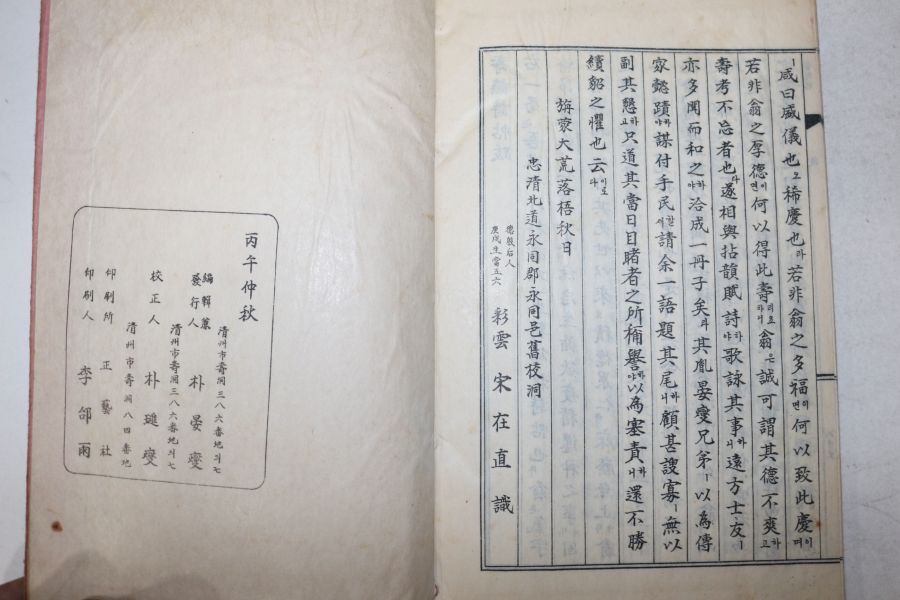 ㅣ咸曰威儀也ㅗ稀慶也라若非翁之多福이면何以致此慶이며
若非翁之厚德이면何以得此壽리오하니翁은誠可謂其德不爽하고
壽考不忘者也다遂相與拈韻賦詩하야歌詠其事하니遠方士友ㅣ
亦多聞而和之하야洽成一冊子矣라其胤晏燮兄弟ㅣ以為傳
家懿蹟하야謀付手民할새請余一語題其尾하니顧甚謏寡ㅣ無以
副其懇하고只道其當日目睹者之所稱譽하야以為塞責하니還不勝
續貂之懼也云이로다
旃蒙大荒落梧秋日
忠清北道永同郡永同邑舊校洞
德殷后人
庚戌生當五六
彩雲 宋在直 識
丙午仲秋
清州市壽洞三八六番地의七
編輯兼
發行人 朴晏燮
清州市壽洞三八六番地의七
校正人 朴 燮
清州市壽洞八四番地
印刷所 正藝社
印刷人 李 雨